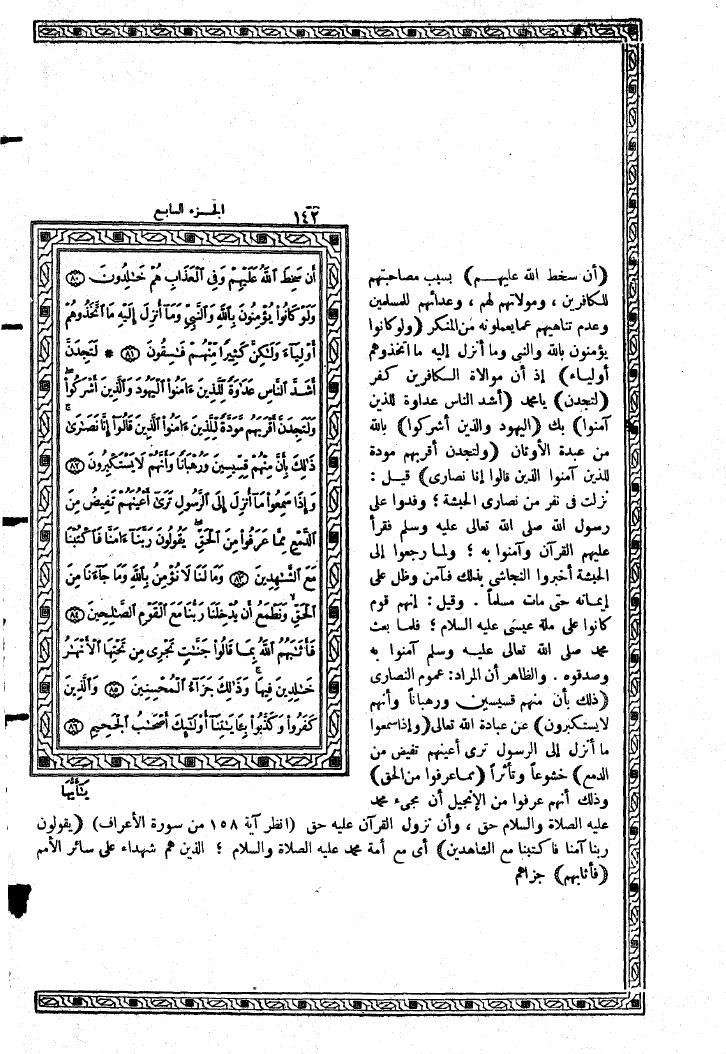 ١٤٣ الجزء السابع
أَن سَخِطَ ٱللَّهُ عَلَيْهِمْ وَفِى ٱلْعَذَابِ هُمْ خَٰلِدُونَ ﴿٨٠﴾
وَلَوْ كَانُوا۟ يُؤْمِنُونَ بِٱللَّهِ وَٱلنَّبِىِّ وَمَآ أُنزِلَ إِلَيْهِ مَا ٱتَّخَذُوهُمْ
أَوْلِيَآءَ وَلَٰكِنَّ كَثِيرًا مِّنْهُمْ فَٰسِقُونَ ﴿٨١﴾ * لَتَجِدَنَّ
أَشَدَّ ٱلنَّاسِ عَدَٰوَةً لِّلَّذِينَ ءَامَنُوا۟ ٱلْيَهُودَ وَٱلَّذِينَ أَشْرَكُوا۟ۖ
وَلَتَجِدَنَّ أَقْرَبَهُم مَّوَدَّةً لِّلَّذِينَ ءَامَنُوا۟ ٱلَّذِينَ قَالُوٓا۟ إِنَّا نَصَٰرَىٰۚ
ذَٰلِكَ بِأَنَّ مِنْهُمْ قِسِّيسِينَ وَرُهْبَانًا وَأَنَّهُمْ لَا يَسْتَكْبِرُونَ ﴿٨٢﴾
وَإِذَا سَمِعُوا۟ مَآ أُنزِلَ إِلَى ٱلرَّسُولِ تَرَىٰٓ أَعْيُنَهُمْ تَفِيضُ مِنَ
ٱلدَّمْعِ مِمَّا عَرَفُوا۟ مِنَ ٱلْحَقِّۖ يَقُولُونَ رَبَّنَآ ءَامَنَّا فَٱكْتُبْنَا
مَعَ ٱلشَّٰهِدِينَ ﴿٨٣﴾ وَمَا لَنَا لَا نُؤْمِنُ بِٱللَّهِ وَمَا جَآءَنَا مِنَ
ٱلْحَقِّ وَنَطْمَعُ أَن يُدْخِلَنَا رَبُّنَا مَعَ ٱلْقَوْمِ ٱلصَّٰلِحِينَ ﴿٨٤﴾
فَأَثَٰبَهُمُ ٱللَّهُ بِمَا قَالُوا۟ جَنَّٰتٍ تَجْرِى مِن تَحْتِهَا ٱلْأَنْهَٰرُ
خَٰلِدِينَ فِيهَاۚ وَذَٰلِكَ جَزَآءُ ٱلْمُحْسِنِينَ ﴿٨٥﴾ وَٱلَّذِينَ
كَفَرُوا۟ وَكَذَّبُوا۟ بِـَٔايَٰتِنَآ أُو۟لَٰٓئِكَ أَصْحَٰبُ ٱلْجَحِيمِ ﴿٨٦﴾
يَٰٓأَيُّهَا
(أن سخط الله عليهم) بسبب مصاحبتهم
للكافرين، وموالاتهم لهم، وعدائهم للمسلمين
وعدم تناهيهم عما يعملونه من المنكر (ولو كانوا
يؤمنون بالله والنبى وما أنزل إليه ما اتخذوهم
أولياء) إذ أن موالاة الكافرين كفر
(لتجدن) يا محمد (أشد الناس عداوة للذين
آمنوا) بك (اليهود والذين أشركوا) بالله
من عبدة الأوثان (ولتجدن أقربهم مودة
للذين آمنوا الذين قالوا إنا نصارى) قيل:
نزلت فى نفر من نصارى الحبشة؛ وفدوا على
رسول الله صلى الله تعالى عليه وسلم فقرأ
عليهم القرآن وآمنوا به؛ ولما رجعوا إلى
الحبشة أخبروا النجاشى بذلك فآمن وظل على
إيمانه حتى مات مسلماً. وقيل: إنهم قوم
كانوا على ملة عيسى عليه السلام؛ فلما بعث
محمد صلى الله تعالى عليه وسلم آمنوا به
وصدقوه. والظاهر أن المراد: عموم النصارى
(ذلك بأن منهم قسيسين ورهباناً وأنهم
لا يستكبرون) عن عبادة الله تعالى (وإذا سمعوا
ما أنزل إلى الرسول ترى أعينهم تفيض من
الدمع) خشوعاً وتأثراً (مما عرفوا من الحق)
وذلك أنهم عرفوا من الإنجيل أن مجىء محمد
عليه الصلاة والسلام حق، وأن نزول القرآن عليه حق (انظر آية ١٥٨ من سورة الأعراف) (يقولون
ربنا آمنا فاكتبنا مع الشاهدين) أى مع أمة محمد عليه الصلاة والسلام؛ الذين هم شهداء على سائر الأمم
(فأثابهم) جزاهم